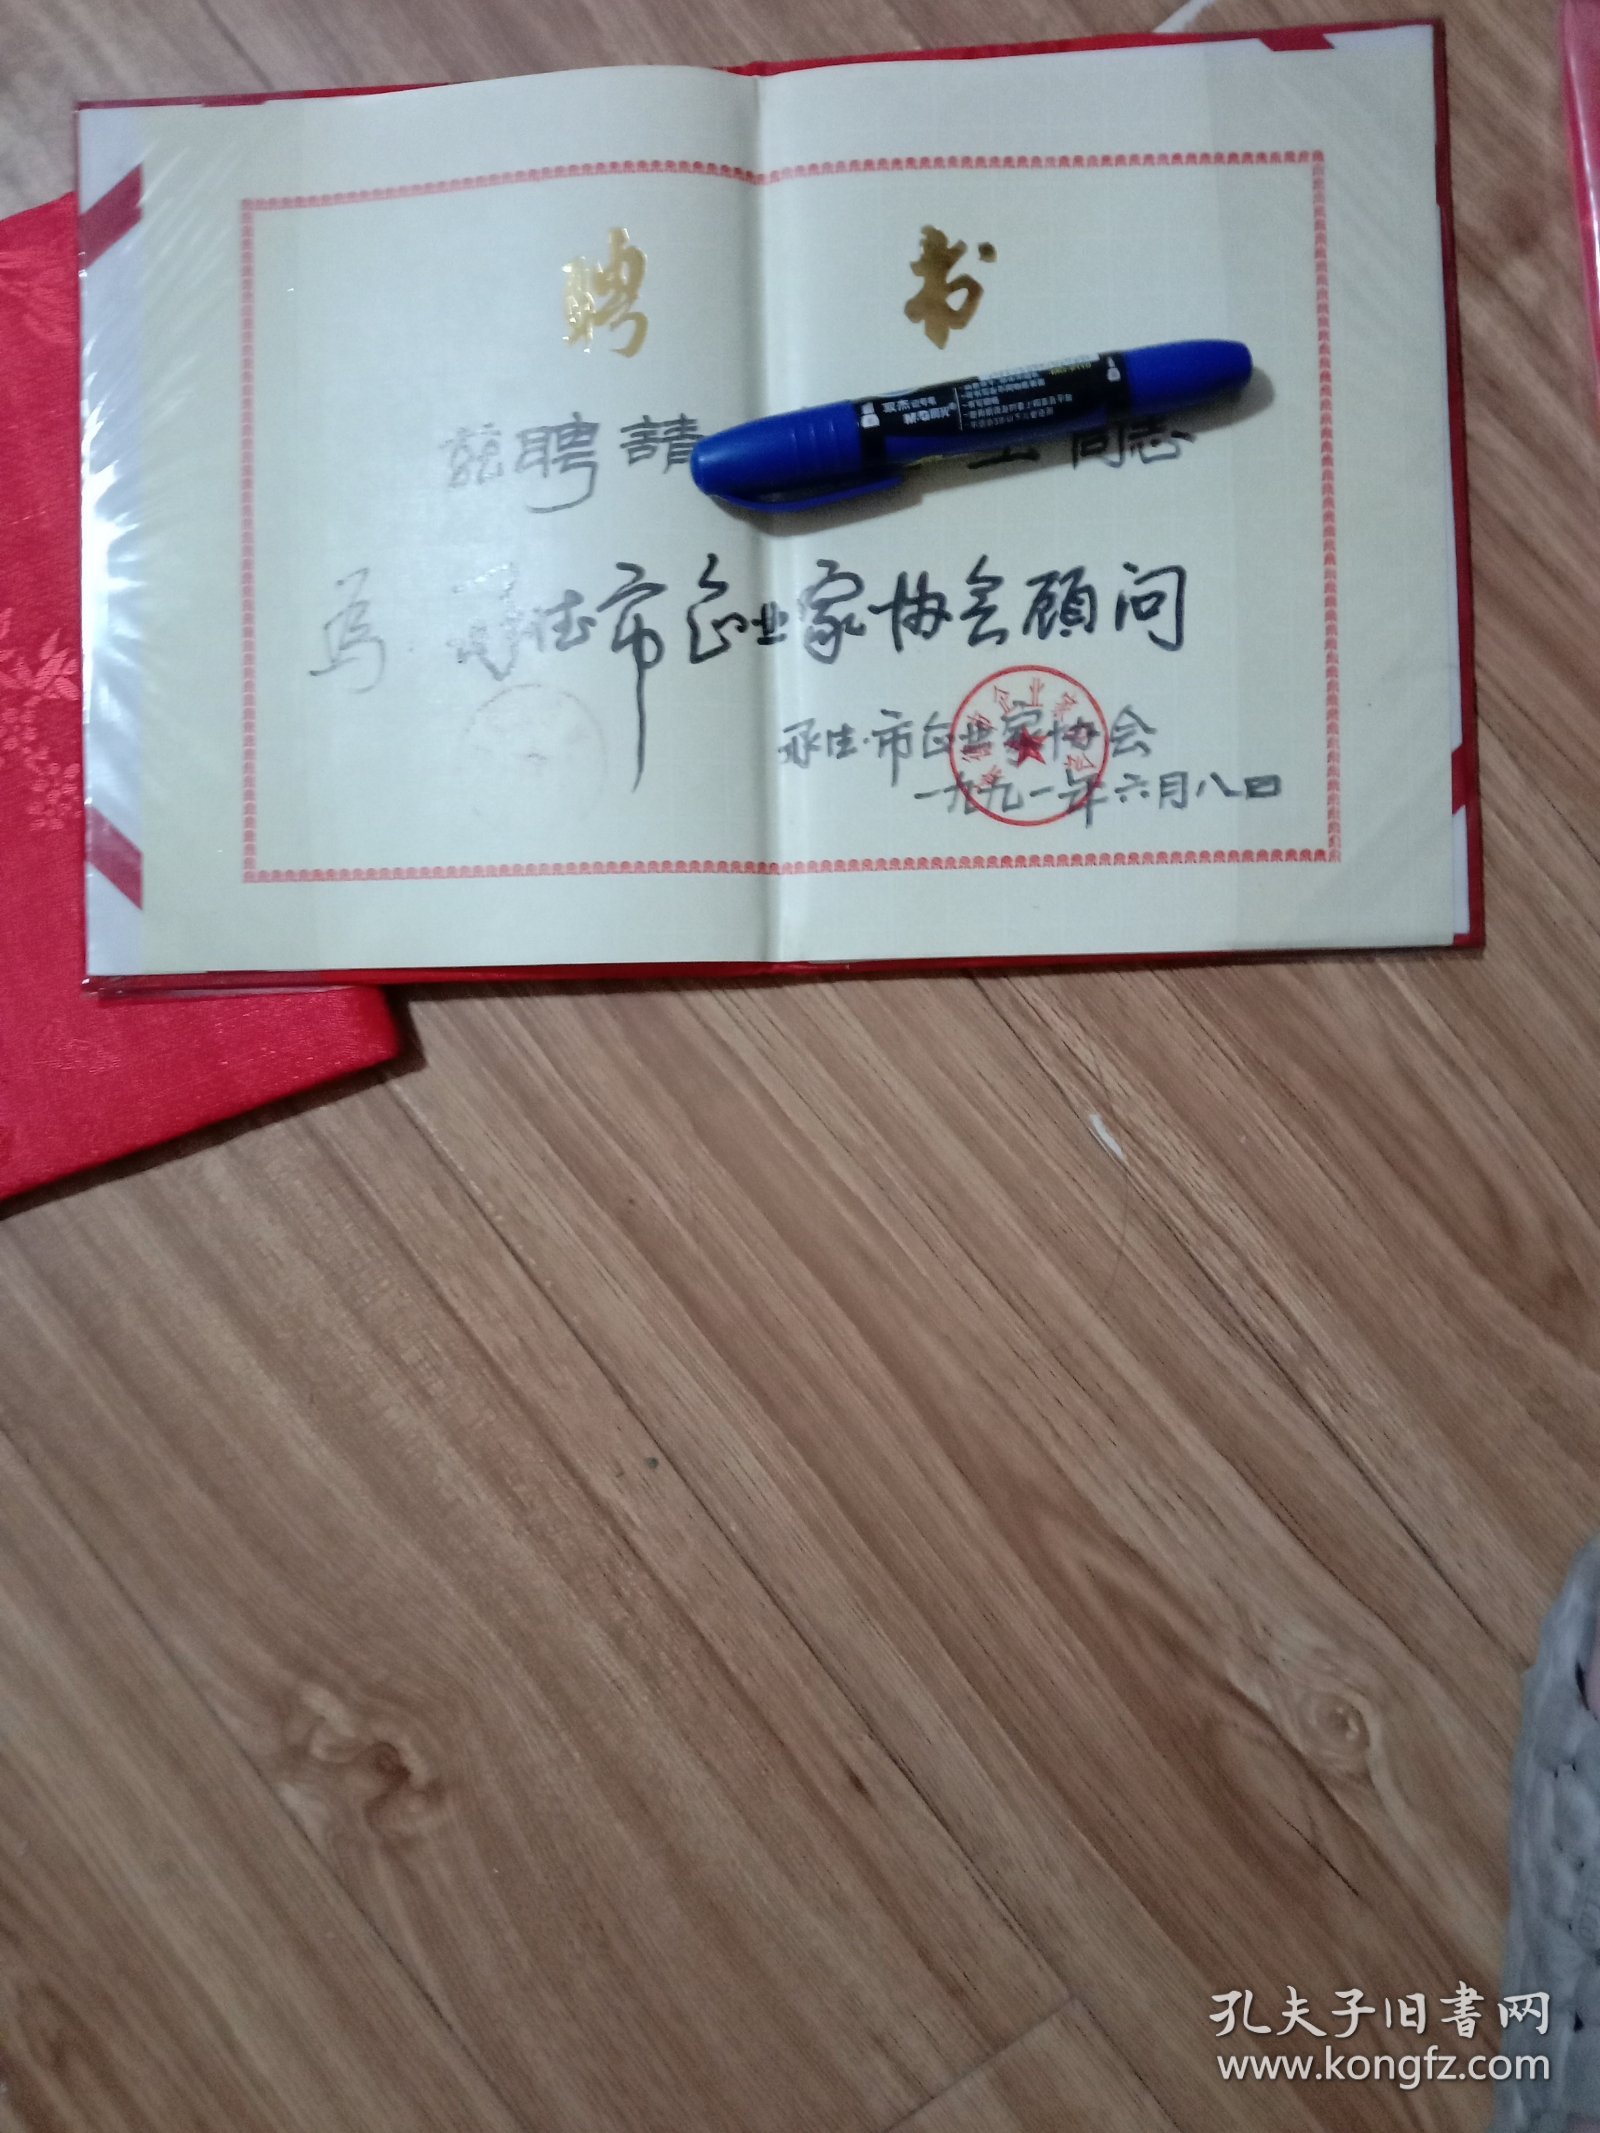 聘书
兹聘請 同志
为 承德市企业家协会顾问
承德市企业家协会
一九九一年六月八日
孔夫子旧書网
www.kongfz.com